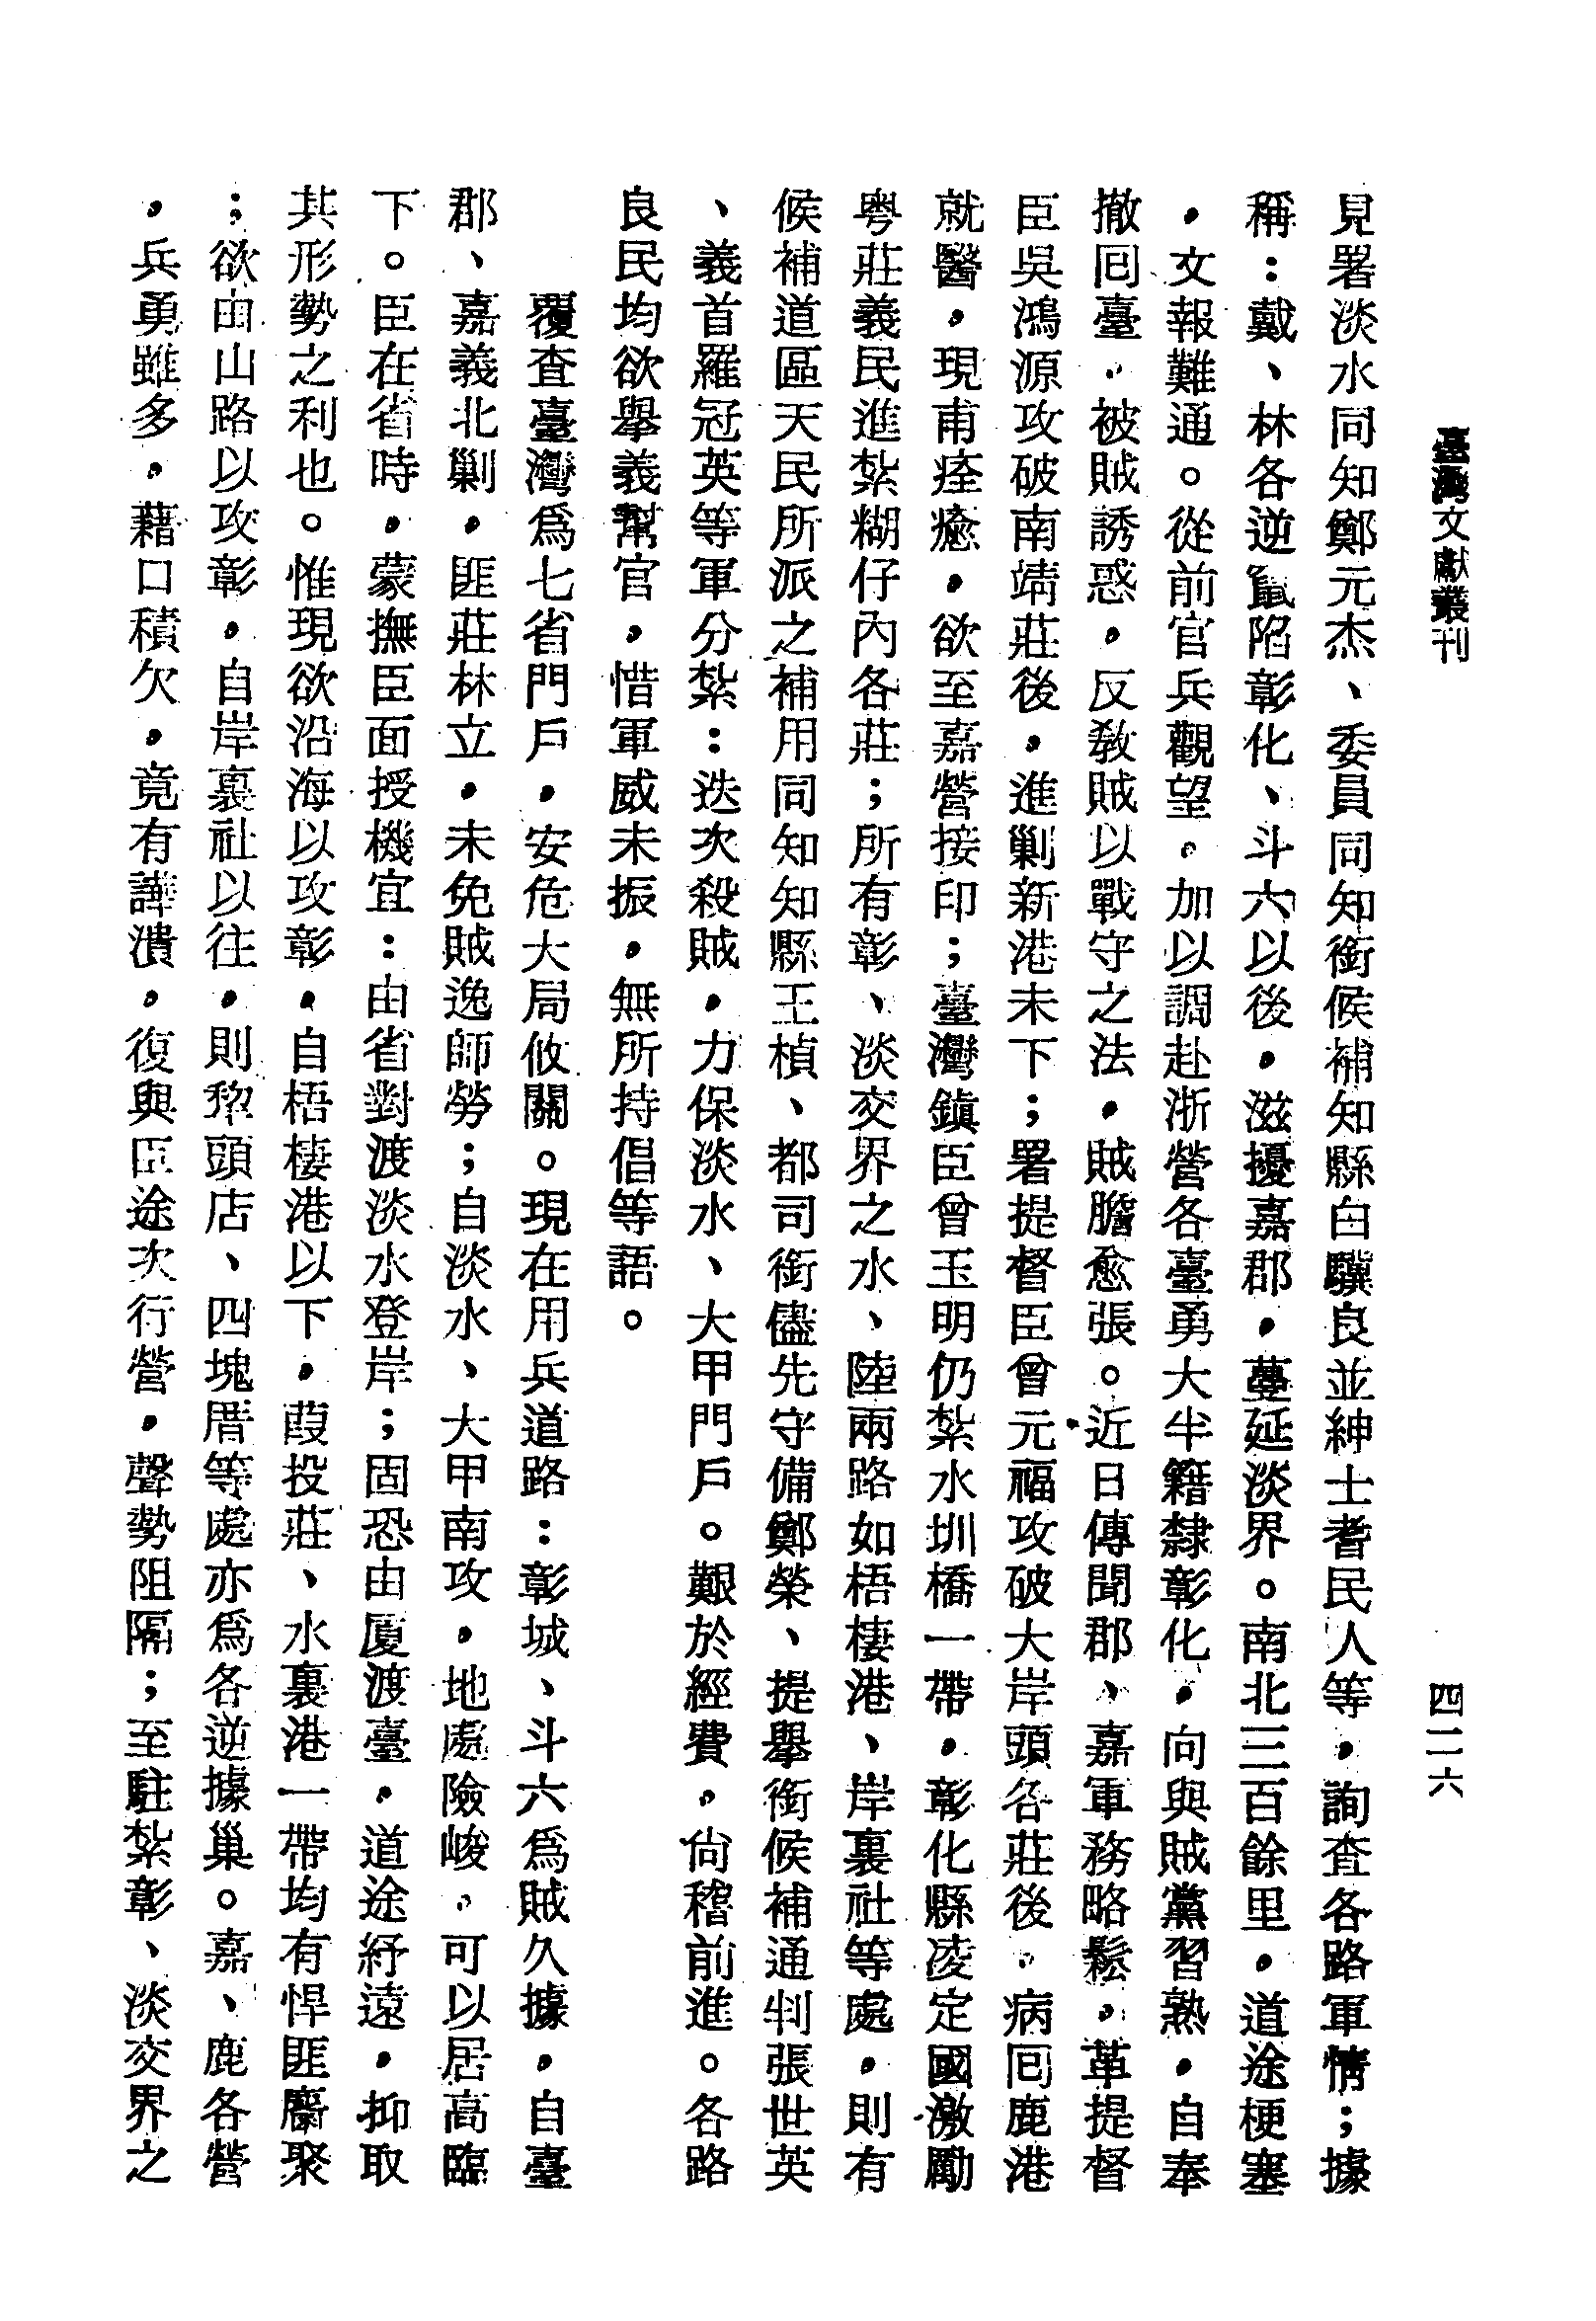 臺灣文獻叢刊
四二六
見署淡水同知鄭元杰、委員同知銜候補知縣白驥良並紳士耆民人等，詢查各路軍情；據
稱：戴、林各逆竄陷彰化、斗六以後，滋擾嘉郡，蔓延淡界。南北三百餘里，道途梗塞
，文報難通。從前官兵觀望。加以調赴浙營各臺勇大半籍隸彰化，向與賊黨習熟，自奉
撤回臺，被賊誘惑，反教賊以戰守之法，賊膽愈張。近日傳聞郡、嘉軍務略鬆，革提督
臣吳鴻源攻破南靖莊後，進剿新港未下；署提督臣曾元福攻破大岸頭各莊後，病回鹿港
就醫，現甫痊癒，欲至嘉營接印；臺灣鎮臣曾玉明仍紮水圳橋一帶，彰化縣凌定國激勵
粵莊義民進紮糊仔內各莊；所有彰、淡交界之水、陸兩路如梧棲港、岸裏社等處，則有
候補道區天民所派之補用同知知縣王楨、都司銜儘先守備鄭榮、提舉銜候補通判張世英
、義首羅冠英等軍分紮：迭次殺賊，力保淡水、大甲門戶。艱於經費，尙稽前進。各路
良民均欲舉義幫官，惜軍威未振，無所持倡等語。
覆查臺灣爲七省門戶，安危大局攸關。現在用兵道路：彰城、斗六爲賊久據，自臺
郡、嘉義北剿，匪莊林立，未免賊逸師勞；自淡水、大甲南攻，地處險峻，可以居高臨
下。臣在省時，蒙撫臣面授機宜：由省對渡淡水登岸；固恐由廈渡臺，道途紆遠，抑取
其形勢之利也。惟現欲沿海以攻彰，自梧棲港以下，葭投莊、水裏港一帶均有悍匪麕聚
；欲由山路以攻彰，自岸裏社以往，則犂頭店、四塊厝等處亦爲各逆據巢。嘉、鹿各營
，兵勇雖多，藉口積欠，竟有譁潰，復與臣途次行營，聲勢阻隔；至駐紮彰、淡交界之